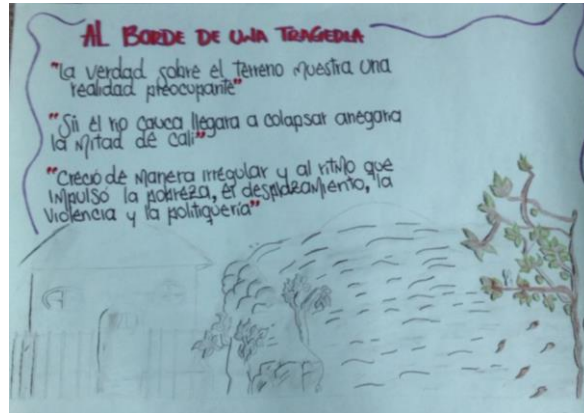 AL BORDE DE UNA TRAGEDIA
"La verdad sobre el terreno muestra una
realidad preocupante"
"Sii el rio cauca llegara a colapsar anegaria
la mitad de cali"
"Creció de manera irregular y al ritmo que
impulsó la pobreza, el desplazamiento, la
violencia y la politiquería"